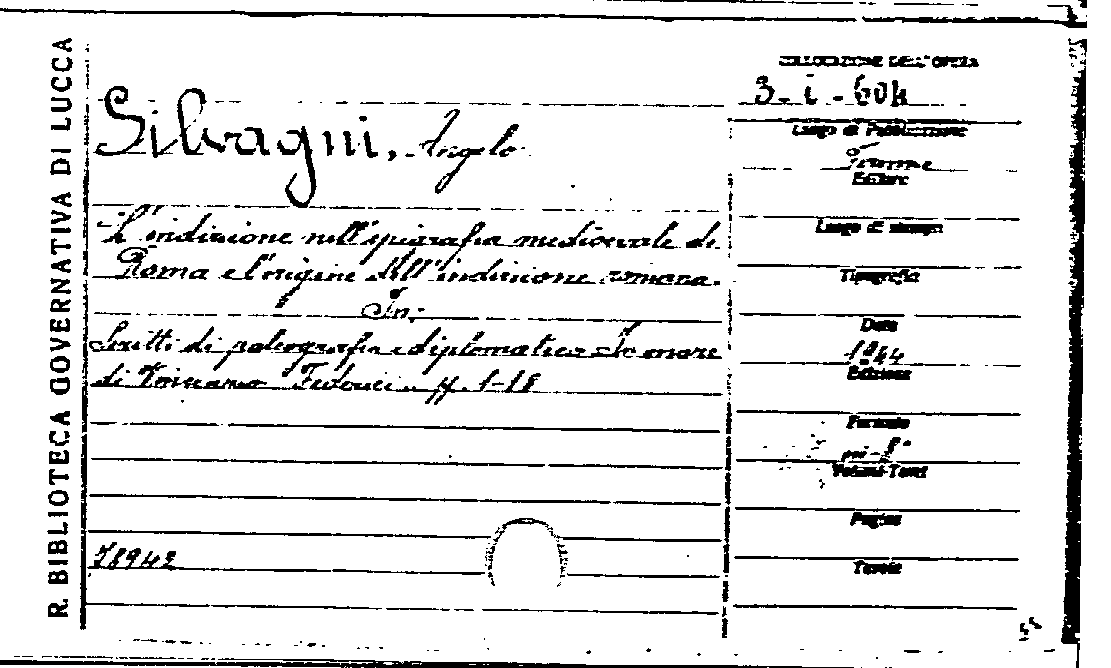 R. BIBLIOTECA GOVERNATIVA DI LUCCA
Silvagni, Angelo
L'indizione nell'epigrafia medioevale di
Roma e l'origine dell'indizione romana.
In:
Scritti di paleografia e diplomatica In onore
di Vincenzo Federici. pp. 1-18
78942
COLLOCAZIONE DELL'OPERA
3-i-604
Luogo di Pubblicazione
Firenze
Editore
Luogo di stampa
Tipografia
Data
1944
Edizione
Formato
in-8°
Volumi-Tomi
Pagine
Tavole